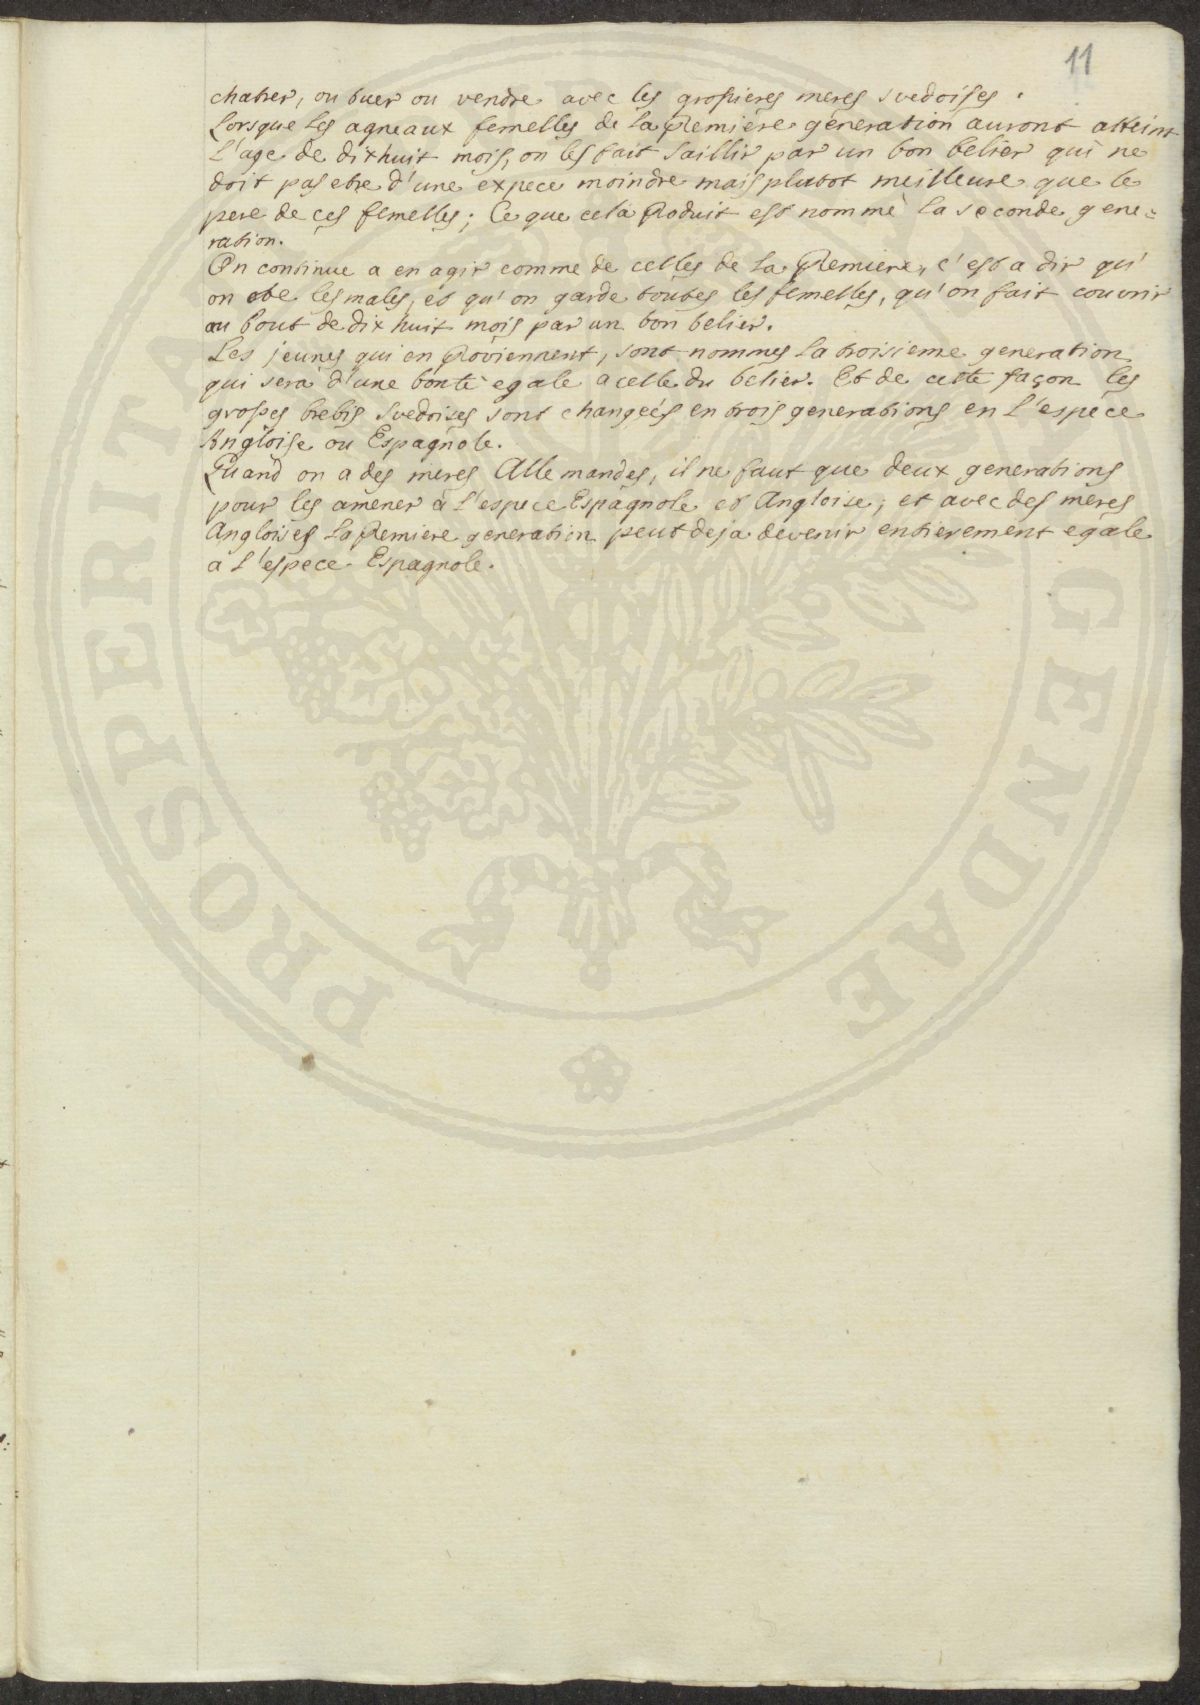 11
chatrer, ou tuer ou vendre avec les grossieres meres svedoises.
Lorsque les agneaux femelles de la Premiere generation auront atteint
l'age de dixhuit mois, on les fait saillir par un bon belier qui ne
doit pas etre d'une expece moindre mais plutot meilleure que le
pere de ces femelles; Ce que cela Produit est nommé la seconde gene=
ration.
On continue a en agir comme de celles de la Premiere, c'est a dir qu'
on ote les males, et qu'on garde toutes les femelles, qu'on fait couvrir
au bout de dix huit mois par un bon belier.
Les jeunes qui en Proviennent, sont nommes la troisieme generation
qui sera d'une bonté egale a celle du belier. Et de cette façon les
grosses brebis svedoises sont changeés en trois generations en l'espece
Angloise ou Espagnole.
Quand on a des meres Allemandes, il ne faut que deux generations
pour les amener à l'espece Espagnole et Angloise; et avec des meres
Angloises la Premiere generation peut deja devenir entierement egale
a l'espece Espagnole.
PROSPERITATI GENDAE